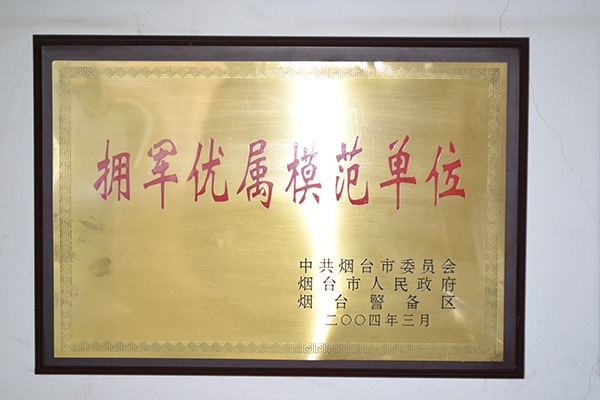 拥军优属模范单位
中共烟台市委员会
烟台市人民政府
烟台警备区
二〇〇四年三月